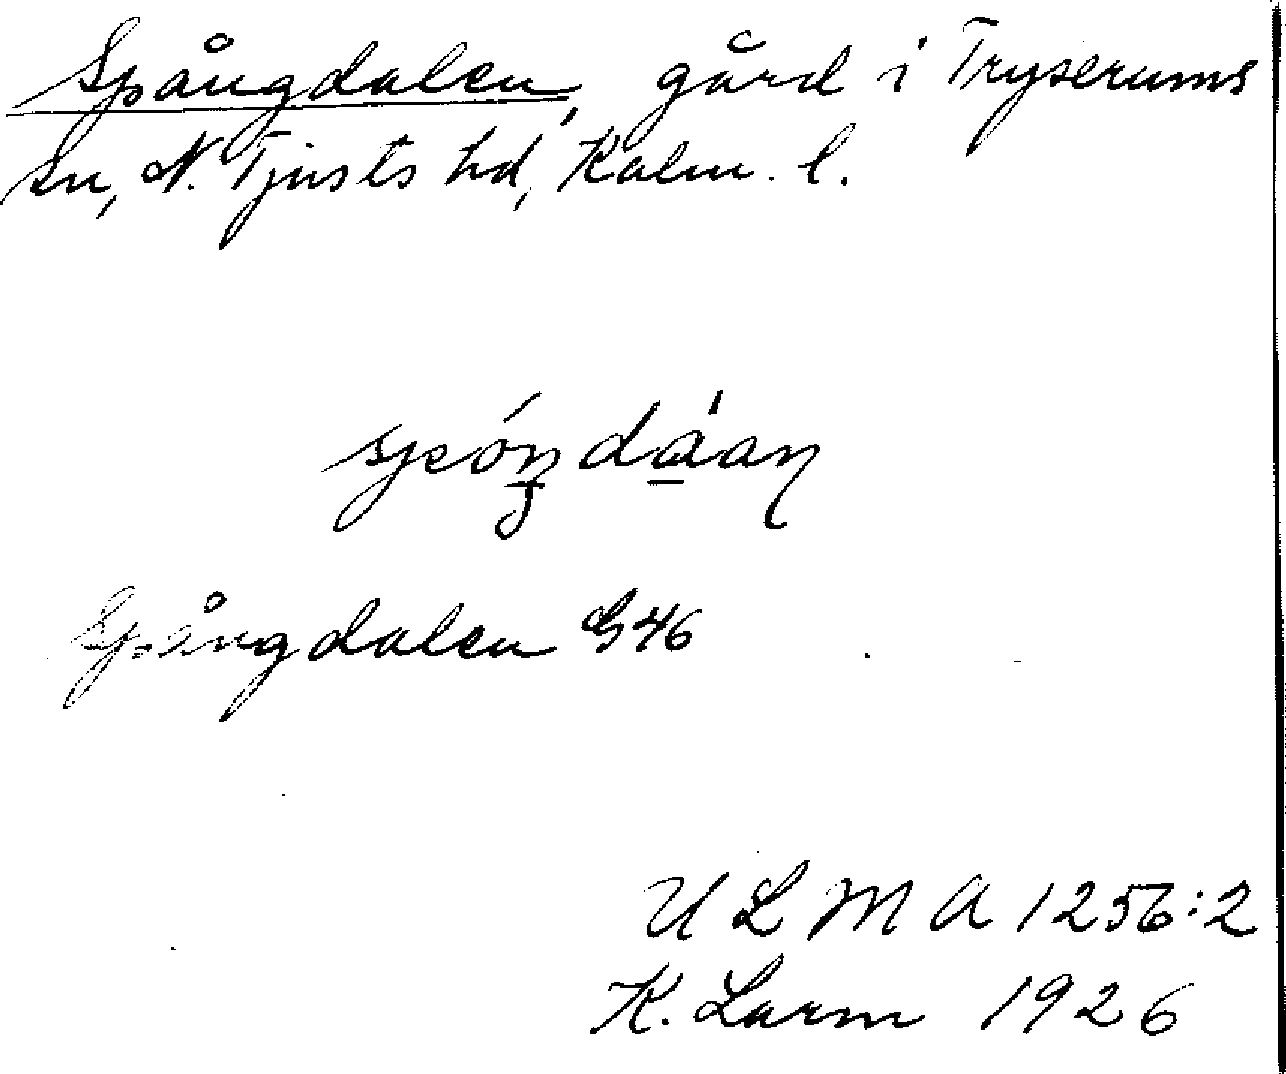 Spångdalen, gård i Tryserums
sn, N. Tjusts hd, Kalm. l.
Spångdalen G46
ULMA 1256:2
K. Larm 1926